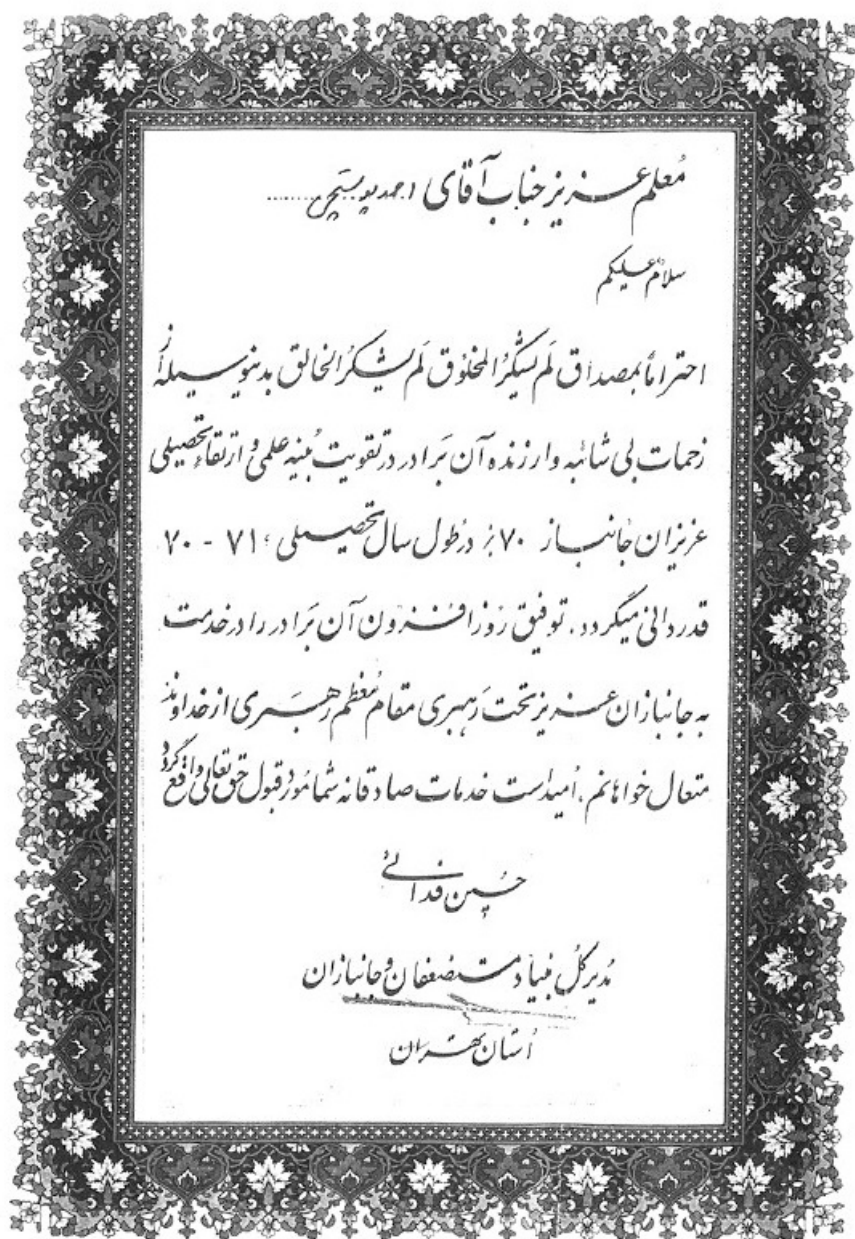 معلم عزیز جناب آقای احمد ........
سلام علیکم
احتراماً بمصداق لَم یشکُرُ المخلوق لَم یشکُرُ الخالق بدینوسیله از
زحمات بی شائبه و ارزنده آن بَرادر در تقویت بُنیه علمی و ارتقاء تحصیلی
عزیزان جانباز ۷۰٪ در طول سال تحصیلی ۷۱ - ۷۰
قدردانی میگردد، توفیق روزافزون آن بَرادر را در خدمت
به جانبازان عزیز تحت رَهبری مقام مُعظم رهبَری از خداوند
متعال خواهانم، اُمیداست خدمات صادقانه شما مُورد قبول حق تعالی واقع گردد
حسین فدائی
مُدیرکُل بنیاد مستضعفان و جانبازان
اُستان تهران